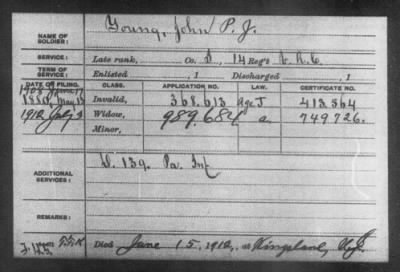 NAME OF SOLDIER: Young, John P. J.
SERVICE: Late rank, Co. D, 14 Reg't V. R. C.
TERM OF SERVICE: Enlisted , 1 Discharged , 1
DATE OF FILING. CLASS. APPLICATION NO. LAW. CERTIFICATE NO.
1880, May Invalid, 368.613 Age J 413.364
1912 July 3 Widow, 989.684 a. 749726.
Minor,
ADDITIONAL SERVICES: D. 139. Pa. Inf
REMARKS:
Died June 15, 1912, at Kingsland, N.J.